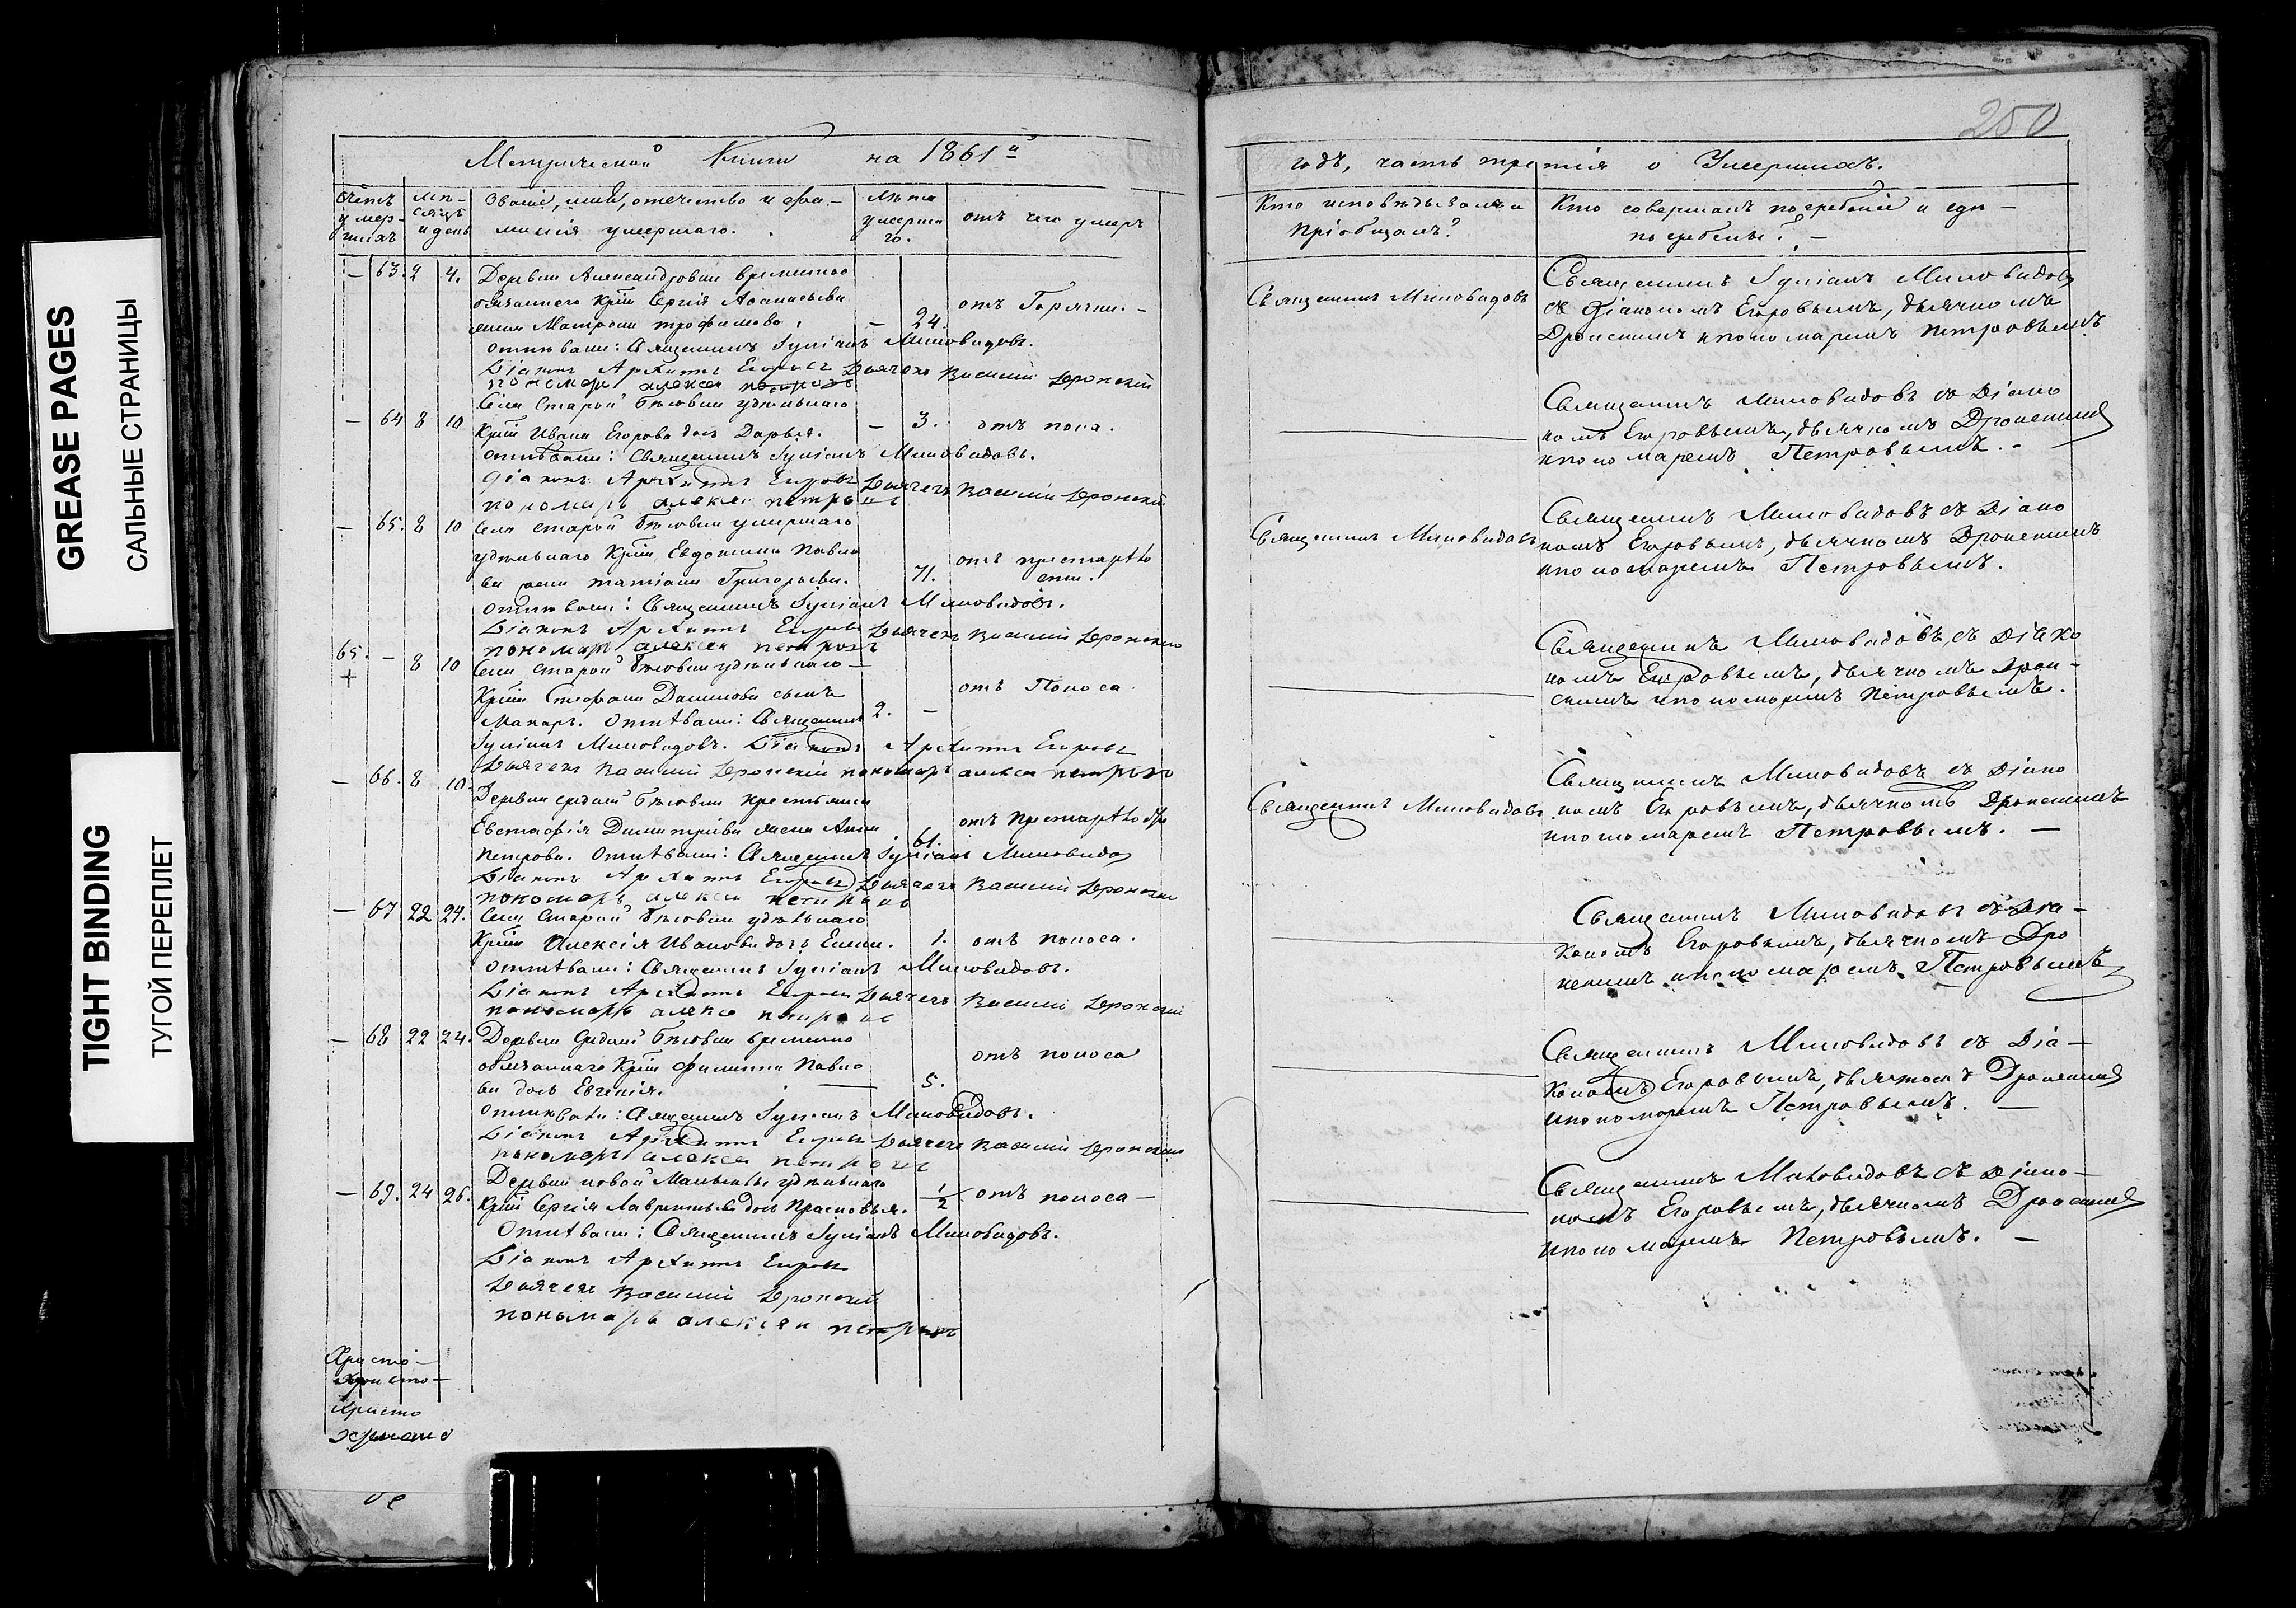 GREASE PAGES
САЛЬНЫЕ СТРАНИЦЫ
TIGHT BINDING
ТУГОЙ ПЕРЕПЛЕТ
Метрической Книги на 1861й
Счетъ умершихъ
Мѣсяцъ и день
Званіе, имя, отечество и фамилія умершаго.
Лѣта умершаго.
отъ чего умеръ
— 63. 2 4. Деревни Александровки временно
обязаннаго Крѣн Сергія Афанасьева
жена Матрона Трофимова, — 24. отъ Горячки. —
отпѣвали: Священникъ Іуліанъ Миловидовъ.
Діаконъ Архиппъ Егоровъ Дьячекъ Василій Дронскій
пономарь алексей петровъ
— 64 8 10 Села Старой Бѣсовки удѣльнаго
Крѣн Ивана Егорова дочь Дарья. — 3. отъ поноса.
отпѣвали: Священникъ Іуліанъ Миловидовъ.
Діаконъ Архиппъ Егоровъ Дьячекъ Василій Дронскій
пономарь алексей петровъ
— 65. 8 10 Села Старой Бѣсовки умершаго
удѣльнаго Крѣн Евдокима Павло
ва жена Татіана Григорьева. 71. отъ престарѣло
сти.
отпѣвали: Священникъ Іуліанъ Миловидовъ.
Діаконъ Архиппъ Егоровъ Дьячекъ Василій Дронскій
пономарь алексей петровъ
65. — 8 10 Села Старой Бѣсовки удѣльнаго —
+
Крѣн Стефана Данилова сынъ отъ Поноса
Макаръ. Отпѣвали: Священникъ 2. —
Іуліанъ Миловидовъ. Діаконъ Архиппъ Егоровъ
Дьячекъ Василій Дронскій пономарь алексей петровъ
— 66. 8 10. Деревни средней Бѣсовки крестьянина
Евстафія Димитріева жена Анна отъ Престарѣлости
Петрова. Отпѣвали: Священникъ Іуліанъ Миловидовъ 61.
Діаконъ Архиппъ Егоровъ Дьячекъ Василій Дронскій
пономарь алексей петровъ
— 67 22 24. Села Старой Бѣсовки удѣльнаго
Крѣн Алексія Иванова дочь Елена. 1. отъ поноса.
отпѣвали: Священникъ Іуліанъ Миловидовъ.
Діаконъ Архиппъ Егоровъ Дьячекъ Василій Дронскій
пономарь алексей петровъ
— 68 22 24. Деревни Средней Бѣсовки временно
обязаннаго Крѣн Филиппа Павло отъ поноса
ва дочь Евгенія. — 5.
отпѣвали: Священникъ Іуліанъ Миловидовъ.
Діаконъ Архиппъ Егоровъ Дьячекъ Василій Дронскій
пономарь алексей петровъ
Деревни новой удѣльнаго
— 69. 24 26. Крѣн Сергія Лаврентьева дочь Прасковья. 1/2 отъ поноса —
Отпѣвали: Священникъ Іуліанъ Миловидовъ.
Діаконъ Архиппъ Егоровъ
Дьячекъ Василій Дронскій
пономарь алексей петровъ
Христо —
Христо —
Христо
Христо
250
годъ, часть третія о Умершихъ.
Кто исповѣдывалъ и пріобщалъ?
Кто совершалъ погребеніе и гдѣ —
погребены? —
Священникъ Миловидовъ
Священникъ Іуліанъ Миловидовъ
съ Діакономъ Егоровымъ, дьячкомъ
Дронскимъ и пономаремъ Петровымъ
Священникъ Миловидовъ съ Діако
номъ Егоровымъ, дьячкомъ Дронскимъ
и пономаремъ Петровымъ. —
Священникъ Миловидовъ
Священникъ Миловидовъ съ Діако
номъ Егоровымъ, дьячкомъ Дронскимъ
и пономаремъ Петровымъ.
Священникъ Миловидовъ, съ Діако
номъ Егоровымъ, дьячкомъ Дрон —
скимъ и пономаремъ Петровымъ.
Священникъ Миловидовъ
Священникъ Миловидовъ съ Діако
номъ Егоровымъ, дьячкомъ Дронскимъ
и пономаремъ Петровымъ. —
Священникъ Миловидовъ съ Діа —
кономъ Егоровымъ, дьячкомъ Дро
нскимъ и пономаремъ Петровымъ
Священникъ Миловидовъ съ Діа —
кономъ Егоровымъ, дьячкомъ Дронскимъ
и пономаремъ Петровымъ. —
Священникъ Миловидовъ съ Діако —
номъ Егоровымъ, дьячкомъ Дронскимъ
и пономаремъ Петровымъ. —